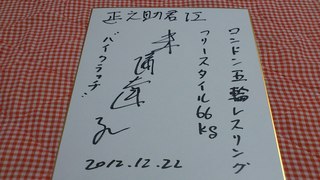 正之助君江
ロンドン五輪レスリング
フリースタイル66kg
米満達弘
バイクラッチ
2012.12.22